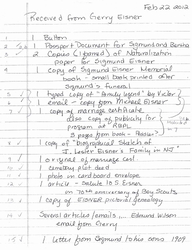 Feb 22 2012
Received from Gerry Eisner
1 Bulletin
1 Passport Document for Sigmund and Bertha
2 Copies (1 framed) of Naturalization
paper for Sigmund Eisner
Copy of Sigmund Eisner Memorial
book - small book printed after
Sigmund's funeral
1 typed copy of "Family Legend" by Victor
1 email - copy from Michael Eisner
1 copy of marriage certificate
also copy of publicity for
program at RBPL
3 pages from book -
1 copy of "Biographical Sketch of
J. Lester Eisner's Family in NJ"
1 original of marriage cert
1 cemetery plot deed
1 photo on cardboard envelope
1 article - Salute to S Eisner
on 70th anniversary of Boy Scouts
1 copy of EISNER pictorial genealogy
Several articles/emails, Edmund Wilson
email from Gerry
1 letter from Sigmund to his sons 1907